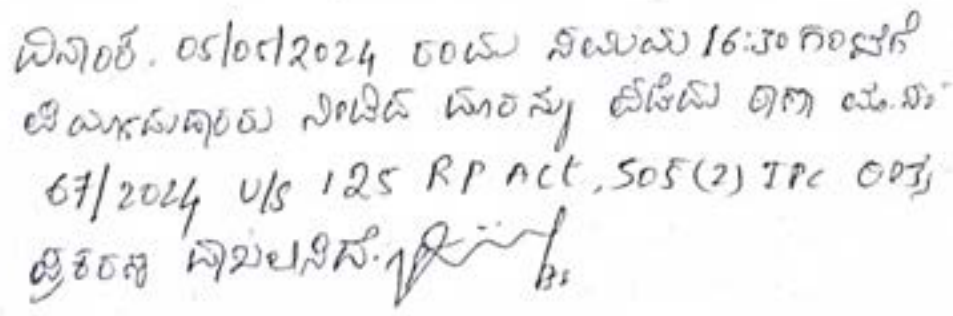 ದಿನಾಂಕ. 05/05/2024 ರಂದು ಸಮಯ 16:30 ಗಂಟೆಗೆ
ಪಿರ್ಯಾದುದಾರರು ನೀಡಿದ ದೂರನ್ನು ಪಡೆದು ಠಾಣಾ ಮೊ.ನಂ
67/2024 U/S 125 RP Act, 505(2) IPC ರೀತ್ಯ
ಪ್ರಕರಣ ದಾಖಲಿಸಿದೆ.